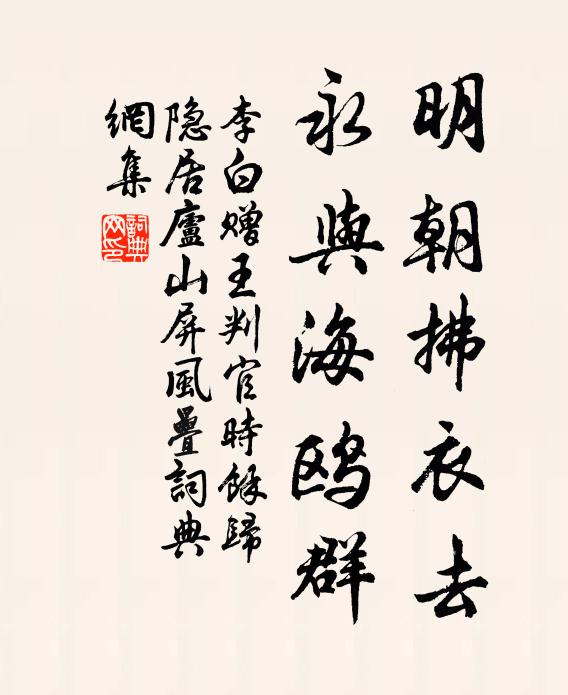 明朝拂衣去
永與海鸥群
李白赠王判官時餘歸
隐居廬山屏風疊詞典
網集
詞典
网印